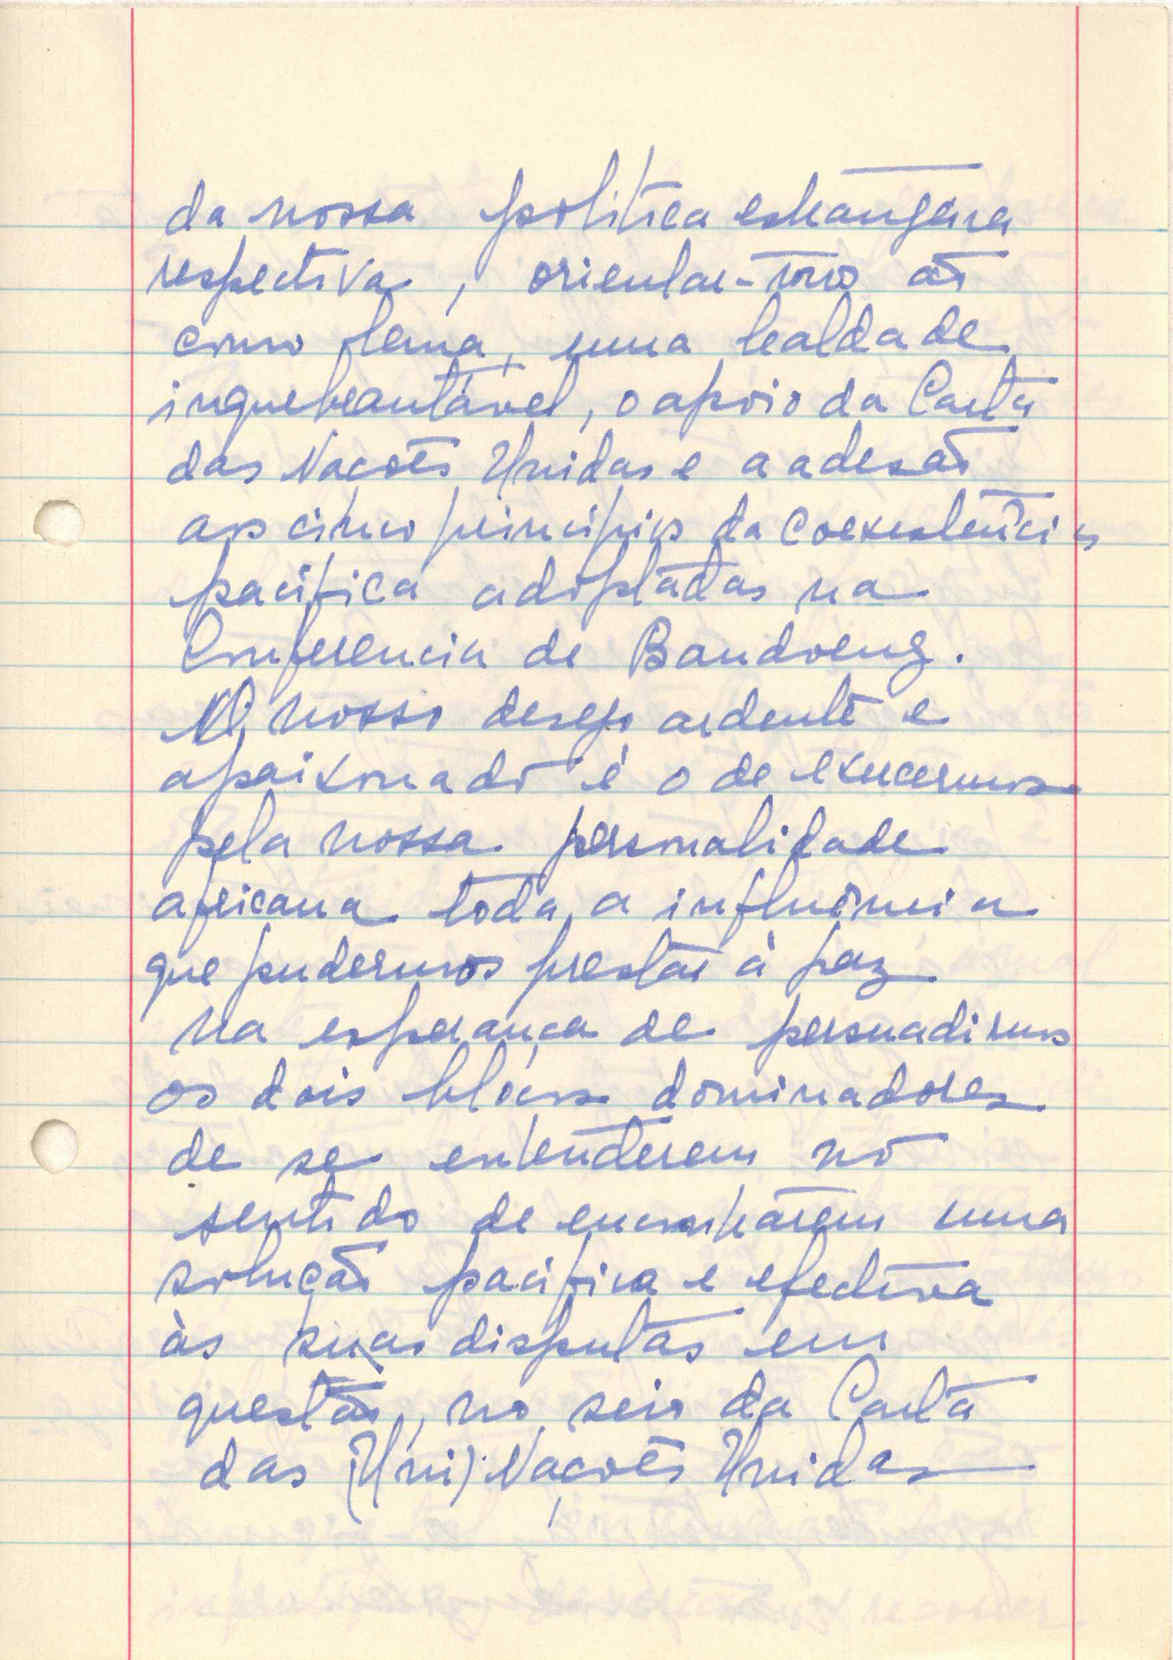 da nossa política estrangeira
respectiva, orientar-
como lema, uma lealdade
inquebrantável, o apoio da Carta
das Nações Unidas e a adesão
aos cinco princípios da Coexistência
pacífica adoptadas na
Conferencia de Bandoeng.
nosso desejo ardente e
apaixonado é o de exercermos
pela nossa personalidade
africana toda a influência
que pudermos prestar à paz
na esperança de persuadirmos
os dois blocos dominadores
de se entenderem no
sentido de encontrarem uma
solução pacífica e efectiva
às suas disputas em
questão, no seio da Carta
das (Uni) Nações Unidas